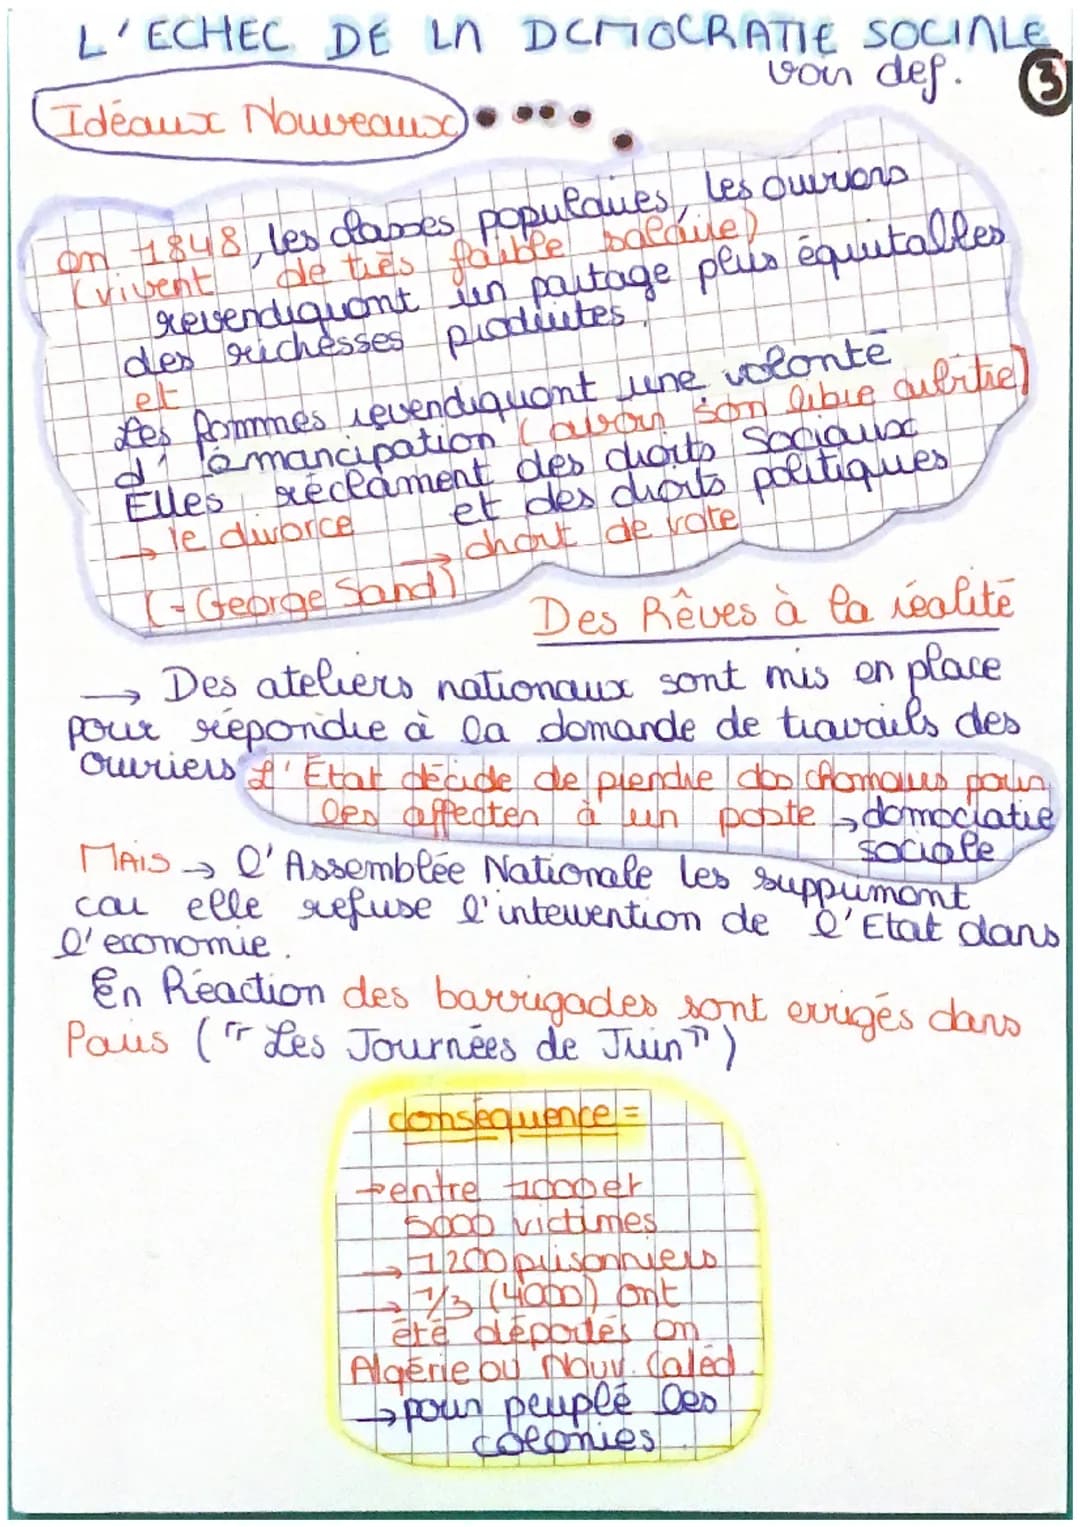 L'ECHEC DE LA DEMOCRATIE SOCIALE
voir def. 3
Idéaux Nouveaux
en 1848, les classes populaires, les ouvriers
(vivent de très faible salaire)
revendiquent un partage plus équitables
des richesses produites.
et
Les femmes revendiquent une volonté
d'émancipation (avoir son libre arbitre)
Elles réclament des droits sociaux
et des droits politiques
→ le divorce
→ droit de vote
(= George Sand)
Des Rêves à la réalité
→ Des ateliers nationaux sont mis en place
pour répondre à la demande de travails des
ouvriers L'Etat décide de prendre des chomeurs pour
les affecter à un poste → democratie
sociale
MAIS → l'Assemblée Nationale les suppriment
car elle refuse l'intervention de l'Etat dans
l'economie.
En Réaction des barrigades sont errigés dans
Paris ("Les Journées de Juin")
conséquence =
→ entre 4000 et
5000 victimes
→ 1200 prisonniers
→ 1/3 (4000) ont
été déportés en
Algérie ou Nouv. Caléd.
→ pour peuplé les
colonies